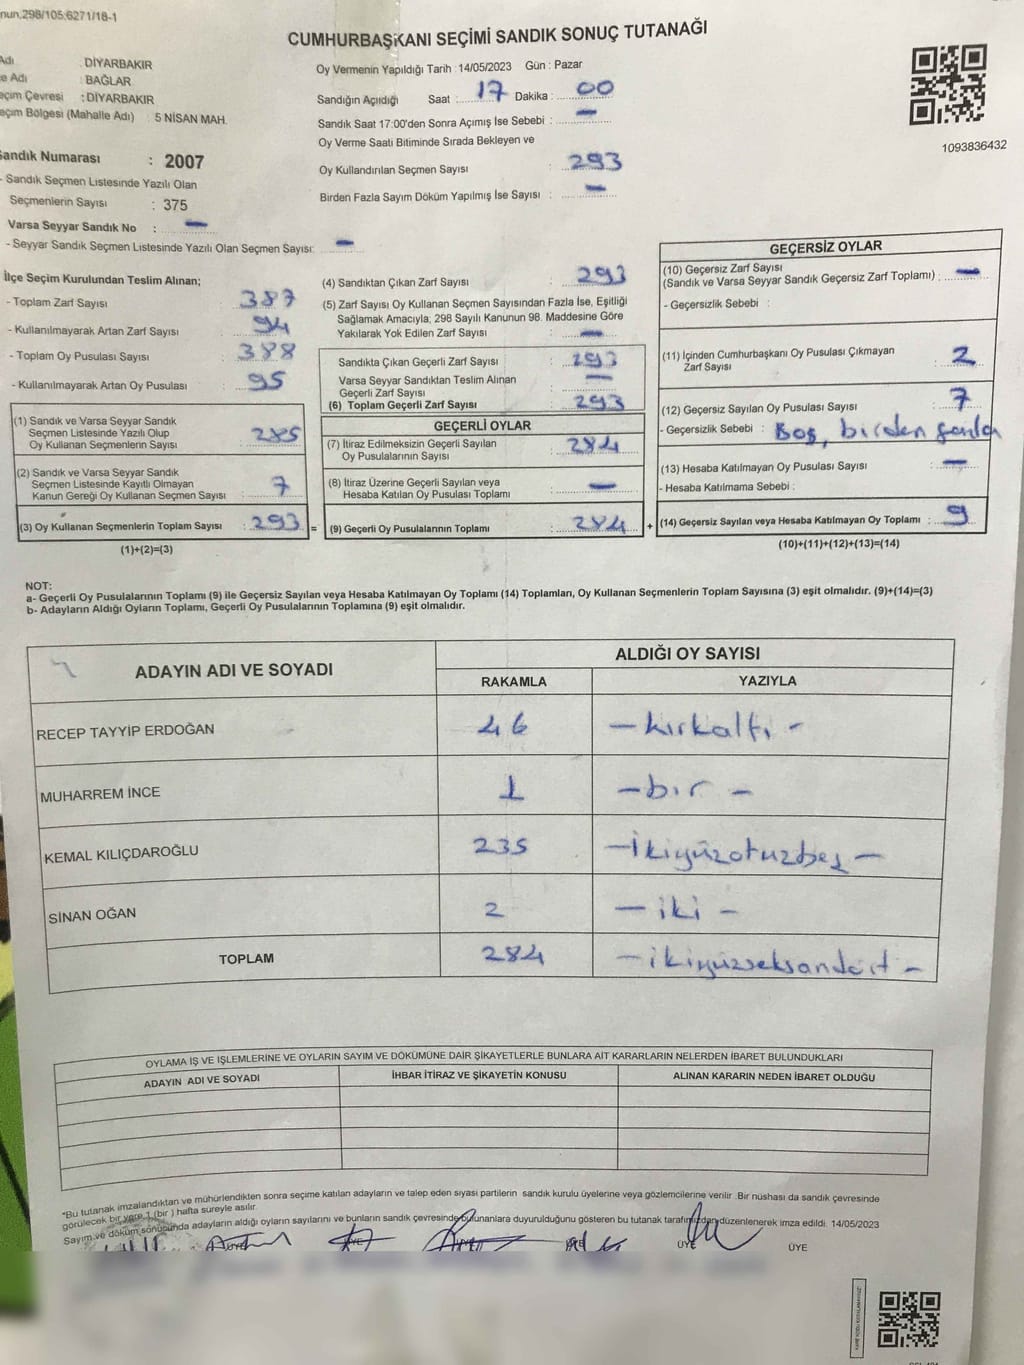 nun.298/105;6271/18-1
CUMHURBAŞKANI SEÇİMİ SANDIK SONUÇ TUTANAĞI
Adı : DİYARBAKIR
e Adı : BAĞLAR
eçim Çevresi : DİYARBAKIR
eçim Bölgesi (Mahalle Adı) : 5 NİSAN MAH.
Sandık Numarası : 2007
- Sandık Seçmen Listesinde Yazılı Olan
Seçmenlerin Sayısı : 375
Varsa Seyyar Sandık No : —
- Seyyar Sandık Seçmen Listesinde Yazılı Olan Seçmen Sayısı: —
Oy Vermenin Yapıldığı Tarih : 14/05/2023 Gün : Pazar
Sandığın Açıldığı Saat : 17 Dakika : 00
Sandık Saat 17:00'den Sonra Açımış İse Sebebi : —
Oy Verme Saati Bitiminde Sırada Bekleyen ve
Oy Kullandırılan Seçmen Sayısı : 293
Birden Fazla Sayım Döküm Yapılmış İse Sayısı : —
1093836432
İlçe Seçim Kurulundan Teslim Alınan;
- Toplam Zarf Sayısı : 387
- Kullanılmayarak Artan Zarf Sayısı : 94
- Toplam Oy Pusulası Sayısı : 388
- Kullanılmayarak Artan Oy Pusulası : 95
(1) Sandık ve Varsa Seyyar Sandık
Seçmen Listesinde Yazılı Olup
Oy Kullanan Seçmenlerin Sayısı : 285
(2) Sandık ve Varsa Seyyar Sandık
Seçmen Listesinde Kayıtlı Olmayan
Kanun Gereği Oy Kullanan Seçmen Sayısı : 7
(3) Oy Kullanan Seçmenlerin Toplam Sayısı : 293 =
(1)+(2)=(3)
(4) Sandıktan Çıkan Zarf Sayısı : 293
(5) Zarf Sayısı Oy Kullanan Seçmen Sayısından Fazla İse, Eşitliği
Sağlamak Amacıyla; 298 Sayılı Kanunun 98. Maddesine Göre
Yakılarak Yok Edilen Zarf Sayısı : —
Sandıkta Çıkan Geçerli Zarf Sayısı : 293
Varsa Seyyar Sandıktan Teslim Alınan
Geçerli Zarf Sayısı : —
(6) Toplam Geçerli Zarf Sayısı : 293
GEÇERLİ OYLAR
(7) İtiraz Edilmeksizin Geçerli Sayılan
Oy Pusulalarının Sayısı : 284
(8) İtiraz Üzerine Geçerli Sayılan veya
Hesaba Katılan Oy Pusulası Toplamı : —
(9) Geçerli Oy Pusulalarının Toplamı : 284 +
GEÇERSİZ OYLAR
(10) Geçersiz Zarf Sayısı
(Sandık ve Varsa Seyyar Sandık Geçersiz Zarf Toplamı) : —
- Geçersizlik Sebebi :
(11) İçinden Cumhurbaşkanı Oy Pusulası Çıkmayan
Zarf Sayısı : 2
(12) Geçersiz Sayılan Oy Pusulası Sayısı : 7
- Geçersizlik Sebebi : Boş, birden
(13) Hesaba Katılmayan Oy Pusulası Sayısı : —
- Hesaba Katılmama Sebebi :
(14) Geçersiz Sayılan veya Hesaba Katılmayan Oy Toplamı : 9
(10)+(11)+(12)+(13)=(14)
NOT:
a- Geçerli Oy Pusulalarının Toplamı (9) ile Geçersiz Sayılan veya Hesaba Katılmayan Oy Toplamı (14) Toplamları, Oy Kullanan Seçmenlerin Toplam Sayısına (3) eşit olmalıdır. (9)+(14)=(3)
b- Adayların Aldığı Oyların Toplamı, Geçerli Oy Pusulalarının Toplamına (9) eşit olmalıdır.
ADAYIN ADI VE SOYADI ALDIĞI OY SAYISI
RAKAMLA YAZIYLA
RECEP TAYYİP ERDOĞAN 46 — kırkaltı -
MUHARREM İNCE 1 — bir -
KEMAL KILIÇDAROĞLU 235 — İkiyüzotuzbeş —
SİNAN OĞAN 2 — iki -
TOPLAM 284 — ikiyüzseksandört -
OYLAMA İŞ VE İŞLEMLERİNE VE OYLARIN SAYIM VE DÖKÜMÜNE DAİR ŞİKAYETLERLE BUNLARA AİT KARARLARIN NELERDEN İBARET BULUNDUKLARI
ADAYIN ADI VE SOYADI İHBAR İTİRAZ VE ŞİKAYETİN KONUSU ALINAN KARARIN NEDEN İBARET OLDUĞU
*Bu tutanak imzalandıktan ve mühürlendikten sonra seçime katılan adayların ve talep eden siyasi partilerin sandık kurulu üyelerine veya gözlemcilerine verilir. Bir nüshası da sandık çevresinde
görülecek bir yere 1 (bir) hafta süreyle asılır.
Sayım ve döküm sonucunda adayların aldığı oyların sayılarını ve bunların sandık çevresinde bulunanlara duyurulduğunu gösteren bu tutanak tarafımızdan düzenlenerek imza edildi. 14/05/2023
ÜYE ÜYE ÜYE